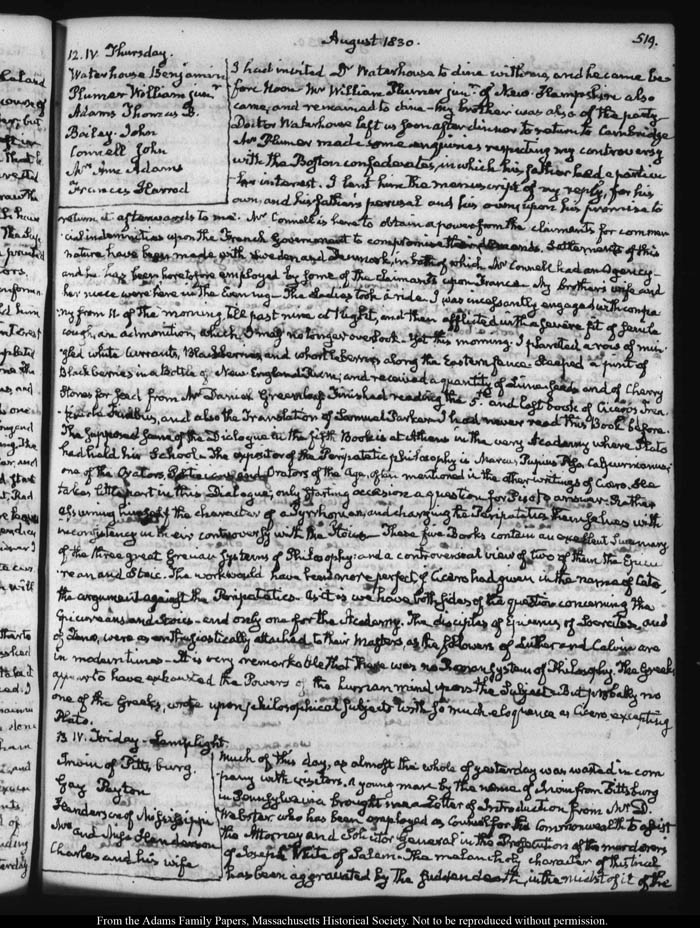 August 1830.
519.
12. IV. Thursday.
Waterhouse Benjamin
Plumer William junr
Adams Thomas B.
Bailey John
Connell John
Mrs Ann Adams
Frances Harrod
I had invited Dr Waterhouse to dine with me, and he came be-
fore Noon. Mr William Plumer junr. of New-Hampshire also
came, and remained to dine. My brother was also of the party.
Doctor Waterhouse left us soon after dinner to return to Cambridge
Mr Plumer made some enquiries respecting my controversy
with the Boston confederates, in which his father had a particu-
lar interest. I lent him the manuscript of my reply, for his
own, and his father's perusal and his own upon his promise to
return it afterwards to me. Mr Connell is here to obtain a power from the claimants for commer-
cial indemnities upon the French Government to compromise their demands. Settlements of this
nature have been made with Sweden and Denmark, in both of which Mr Connell had an Agency—
and he has been heretofore employed by some of the claimants upon France. My brother's wife and
her niece were here in the Evening— The Ladies took a ride. I was incessantly engaged with compa-
ny from 11 of the morning till past nine at Night, and then afflicted with a severe fit of
cough, an admonition which I may no longer overlook. Yet this morning I planted a row of min-
gled white Currants, Blackberries and whortleberries along the Eastern fence. Steeped a pint of
Blackberries in a Bottle of New England Rum; and received a quantity of Seeds and of Cherry
Stones for seed from Mr Daniel Greenleaf. Finished reading the 5th and last book of Cicero's Trea-
tise de Finibus, and also the Translation of Samuel Parker. I had never read this Book before.
The supposed scene of the Dialogue in the fifth Book is at Athens in the very Academy where Plato
had held his School— The expositor of the Peripatetic philosophy is Marcus Pupius Piso Calpurnianus,
one of the Orators of the Age, often mentioned in the other writings of Cicero. He
takes little part in this Dialogue; only starting occasion a question for Piso to answer. Rather
assuming himself the character of a Pyrrhonean, and charging the Peripatetics themselves with
inconsistency in their controversy with the Stoics— These five Books contain an excellent Summary
of the three great Grecian Systems of Philosophy: and a controversial view of two of them the Epicu-
rean and Stoic. The work would have been more perfect if Cicero had given in the name of Cato,
the argument against the Peripatetics. As it is we have both sides of the question concerning the
Epicureans and Stoics— and only one for the Academy. The disciples of Epicurus, of and
of Zeno, were as enthusiastically attached to their Masters, as the followers of Luther and Calvin are
in modern times— It is very remarkable that there was no Roman System of Philosophy. The Greeks
appear to have exhausted the Powers of the human mind upon the Subject. But probably no
one of the Greeks, wrote upon philosophical subjects with so much eloquence as Cicero excepting
Plato.
13. IV. Friday. Lamplight
Irwin of Pittsburg.
Gay Payton
Henderson of Mississippi
Mrs and Miss Henderson
Charles and his wife
Much of this day, as almost the whole of yesterday was wasted in com-
pany with visitors. A young man by the name of Irwin from Pittsburg
in Pennsylvania brought me a Letter of Introduction from Mr D.
Webster who has been employed as Counsel for the Commonwealth to assist
the Attorney and Solicitor General in the Prosecution of the murderers
of Joseph White of Salem. The melancholy character of this trial
has been aggravated by the sudden death, in the midst of it of the
From the Adams Family Papers, Massachusetts Historical Society. Not to be reproduced without permission.